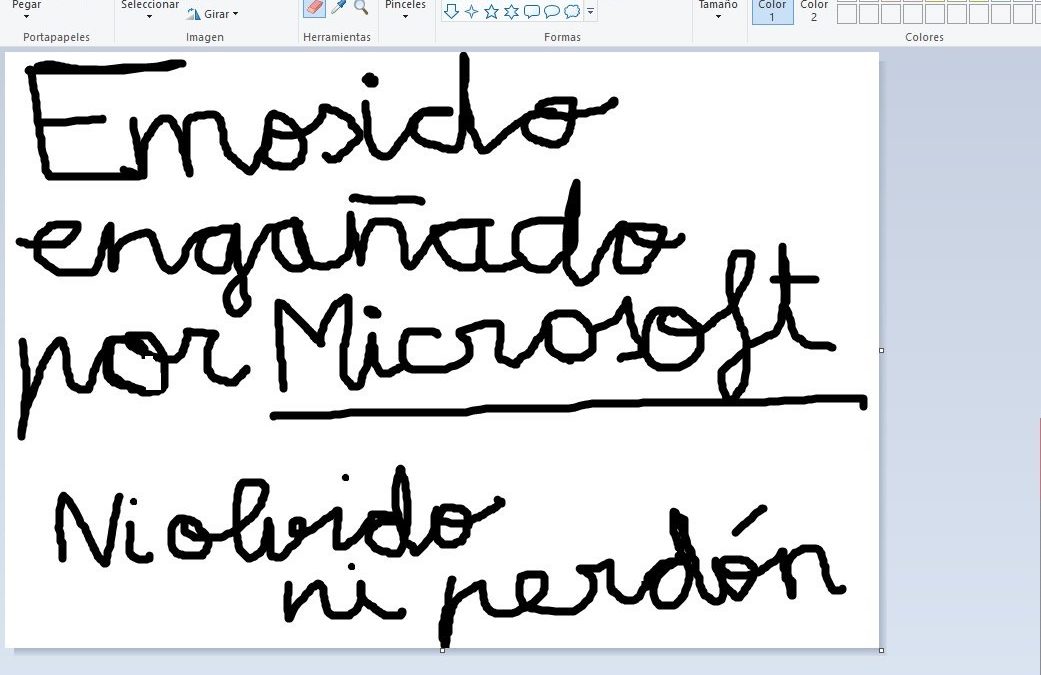 Pegar Seleccionar Girar Pinceles Tamaño Color 1 Color 2
Portapapeles Imagen Herramientas Formas Colores
Emosido
engañado
por Microsoft
Ni olvido
ni perdón